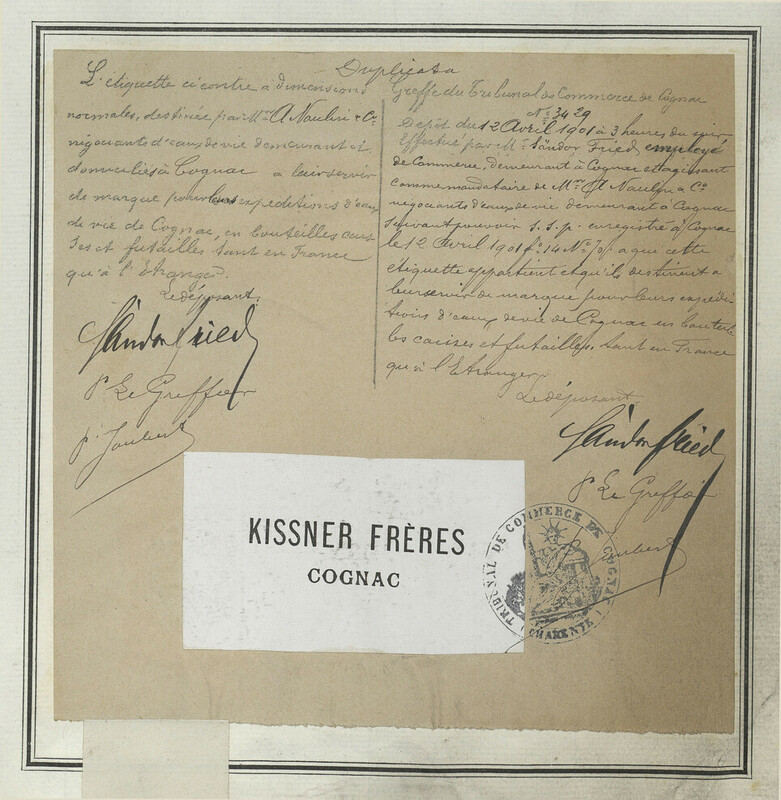 Duplicata
L'étiquette ci contre à dimensions
normales, destinée par Mrs A Naulin & Co
négociants d'eaux de vie demeurant et
domiciliés à Cognac a leur servir
de marque pour leurs expéditions d'eaux
de vie de Cognac, en bouteilles cais
ses et futailles tant en France
qu'à l'Etranger.
Le déposant,
Sándor Fried
pr Le Greffier
p. Joubert
Greffe du Tribunal de Commerce de Cognac
No 3429
Dépôt du 12 Avril 1901 à 3 heures du soir
Effectué par Mr Sándor Fried employé
de Commerce, demeurant à Cognac et agissant
comme mandataire de Mrs A Naulin & Co
négociants d'eaux de vie demeurant à Cognac
suivant pouvoir s.s.p. enregistré à Cognac
le 12 Avril 1901 fo 14 No a qui cette
étiquette appartient et qu'ils destinent a
leur servir de marque pour leurs expédi
tions d'eaux de vie de Cognac en bouteil
les caisses et futailles, tant en France
qu'à l'Etranger.
Le déposant.
Sándor Fried
pr Le Greffier
Joubert
KISSNER FRÈRES
COGNAC
TRIBUNAL DE COMMERCE DE COGNAC
(CHARENTE)